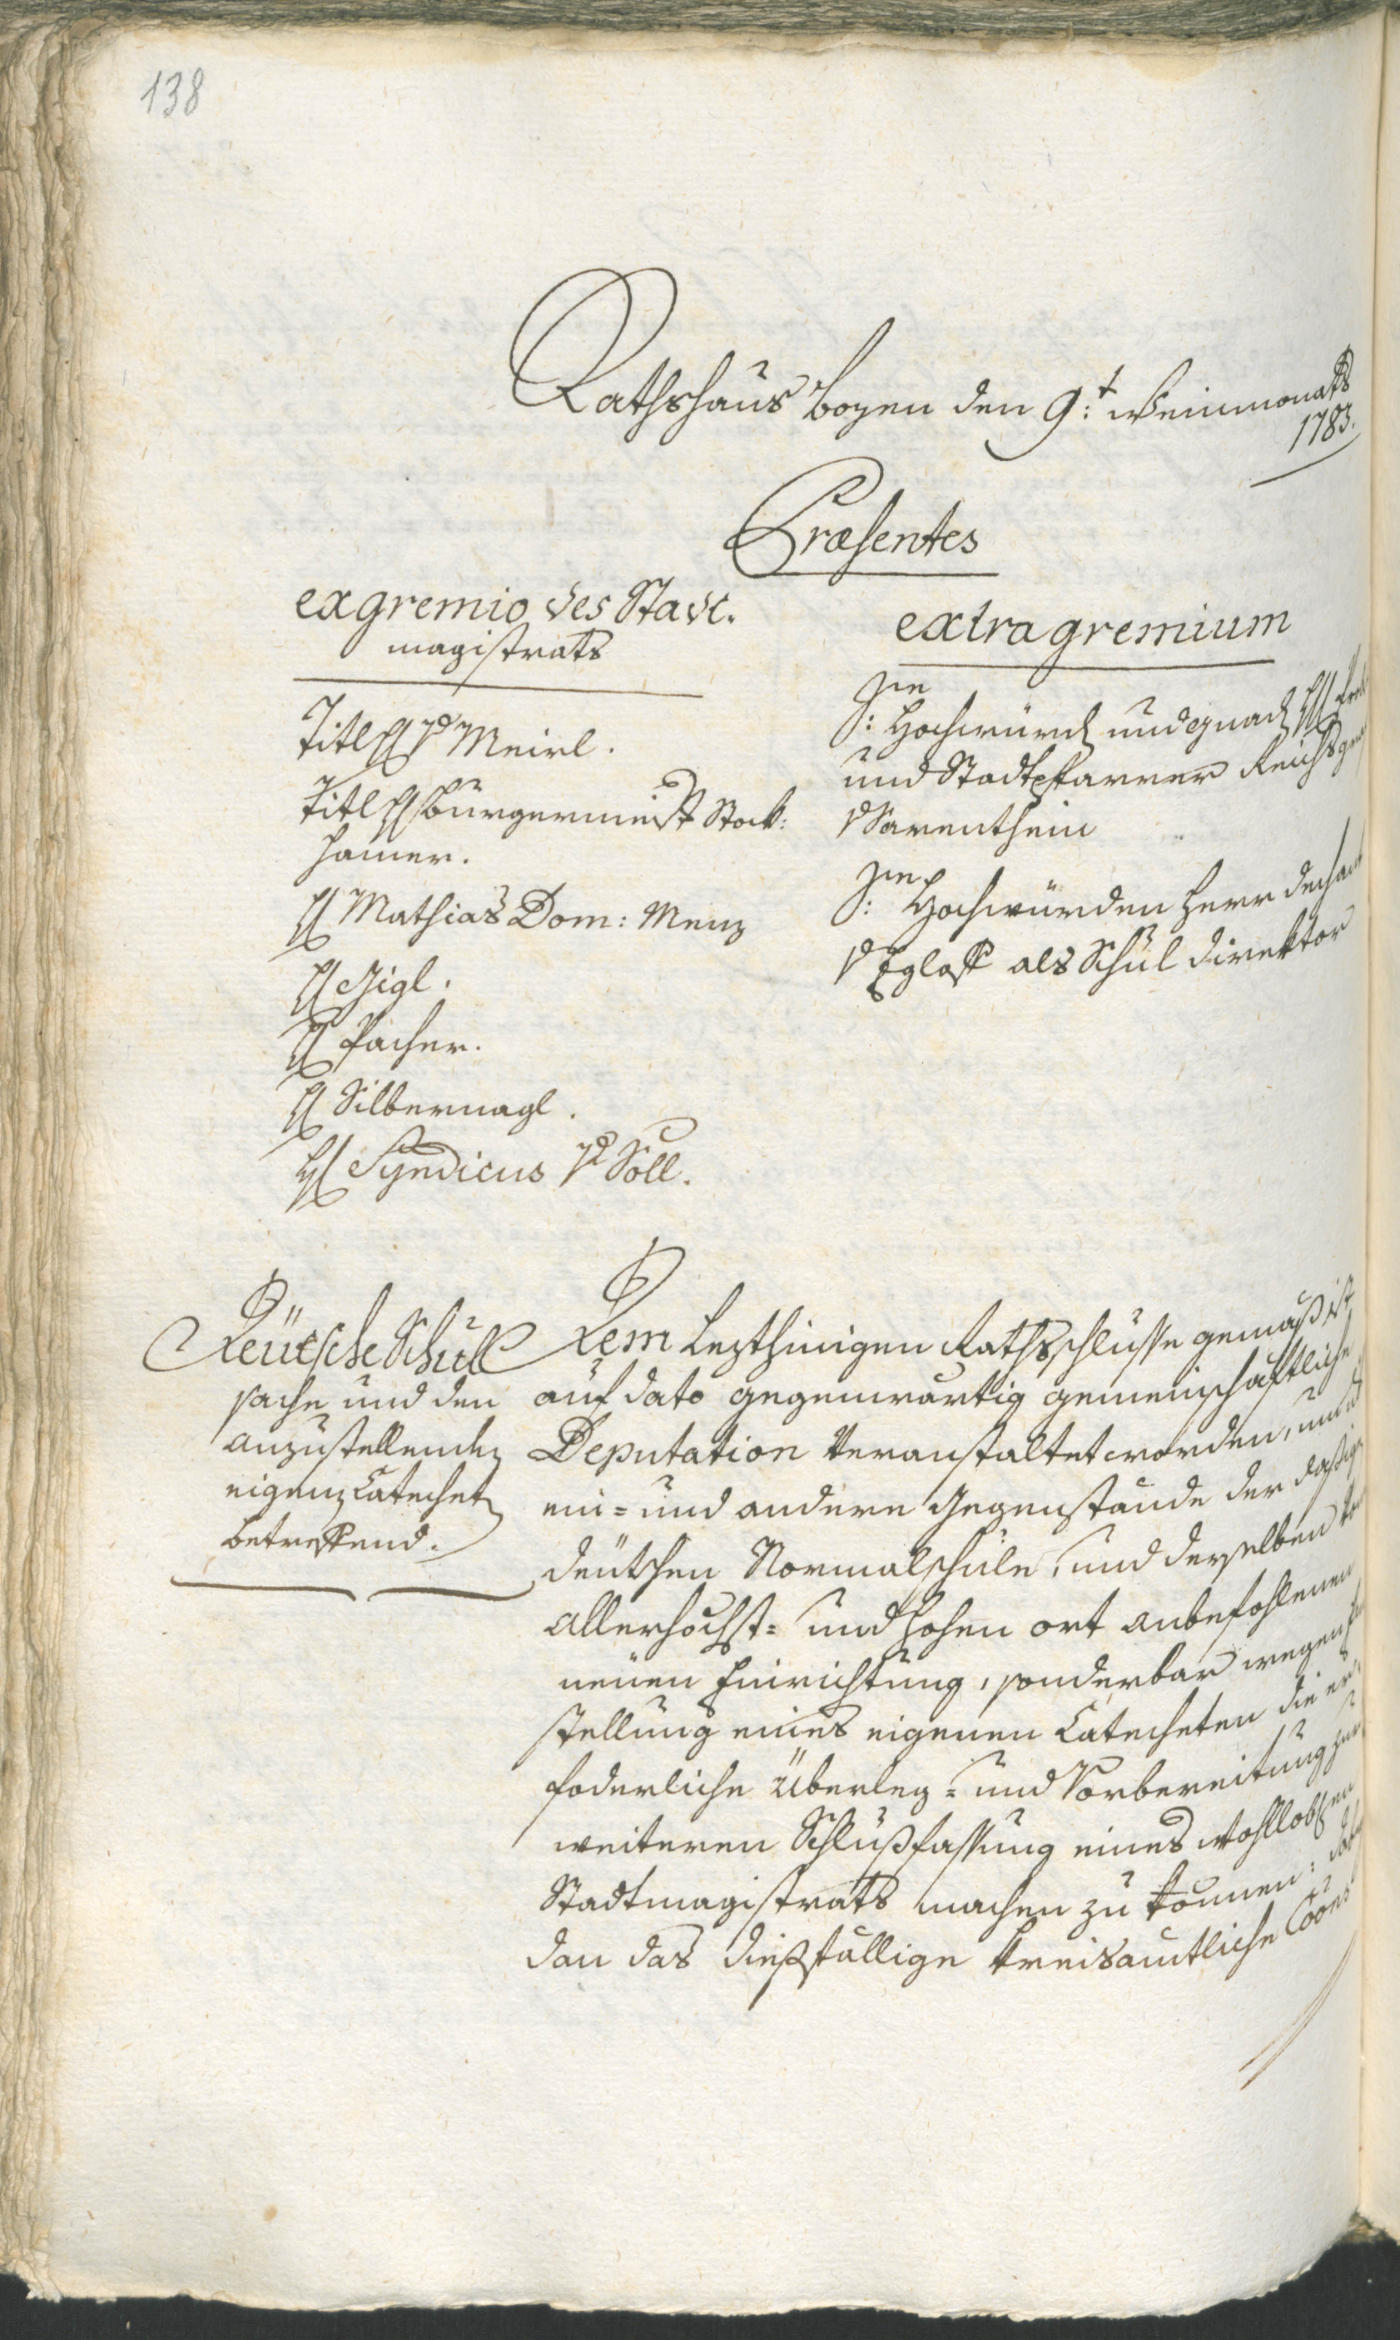 138
Rathshaus Bozen den 9:t Weinmonats
1783.
Præsentes
ex gremio des Stadt-
magistrats
Titl H v Meirl.
Titl H Burgermeist Stock:
hamer.
H Mathias Dom: Menz
H Gigl.
H Pacher.
H Silbernagl.
H Syndicus v Söll.
extra gremium
S:ne Hochwürd und Gnad H
und Stadtpfarrer Reichs
v Sarenthein
S:ne Hochwürden Herr Dechant
v Egloff als Schul Direktor
Deütsche Schull
sache und den
anzustellenden
eigenen Catecheten
betreffend.
Dem Lezthinigen Rathsschlusse gemäß ist
auf dato gegenwärtig gemeinschaftliche
Deputation veranstaltet worden, um
ein- und andere Gegenstände der dasig
deütschen Normalschule, und derselben
allerhöchst- und hohen ort anbefohlenen
neüen Einrichtung, sonderbar wegen
stellung eines eigenen Catecheten die er-
foderliche Überleg- und Vorbereitung zur
weiteren Schlußfassung eines wohllobl:en
Stadtmagistrats machen zu können:
dan das dießfällige Kreisämtliche